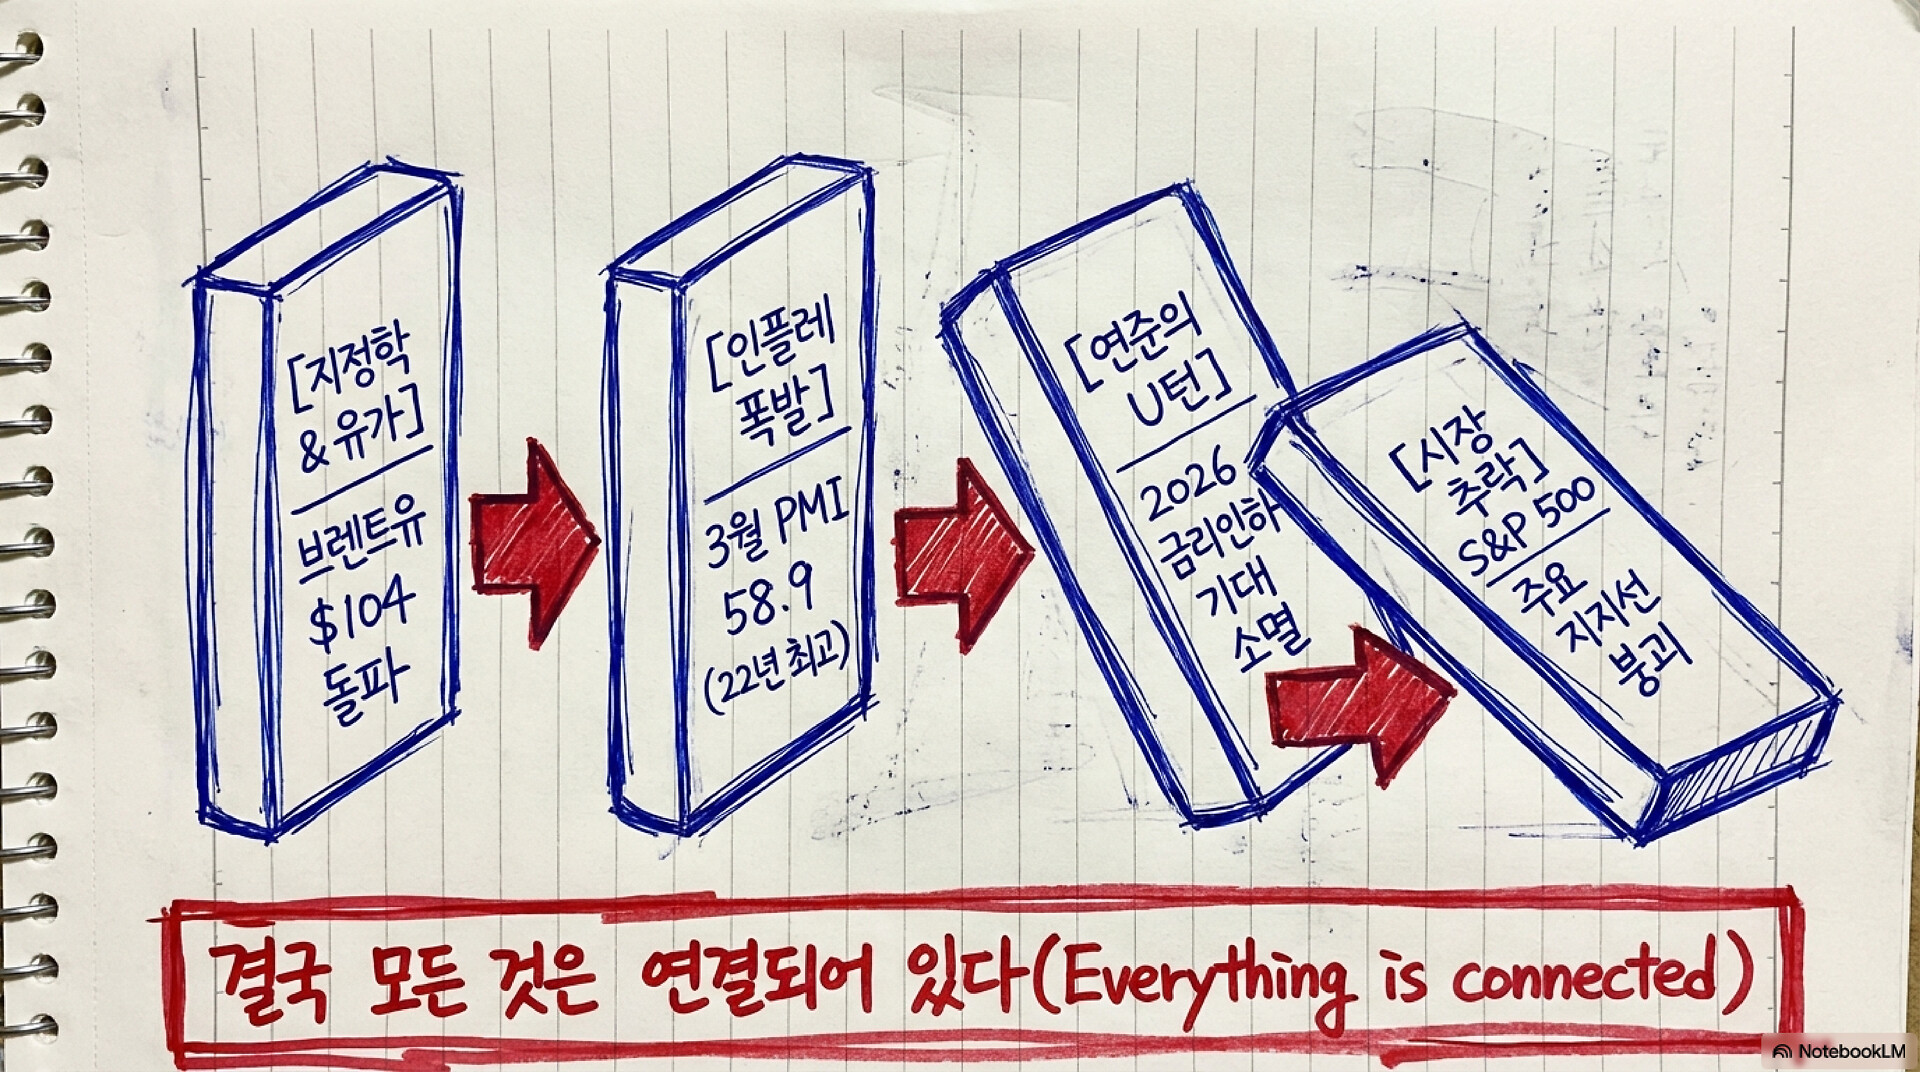 [지정학
& 유가]
브렌트유
$104
돌파
[인플레
폭발]
3월 PMI
58.9
(22년 최고)
[연준의
U턴]
2026
금리인하
기대
소멸
[시장
추락]
S&P 500
주요
지지선
붕괴
결국 모든 것은 연결되어 있다(Everything is connected)
NotebookLM